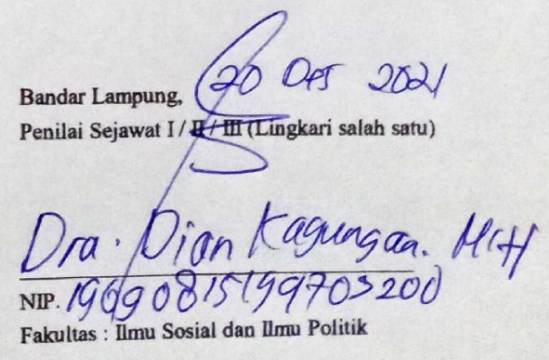 Bandar Lampung, 20 Des 2021
Penilai Sejawat I / II / III (Lingkari salah satu)
Dra. Dian Kagungan. M.H
NIP. 196908151997032001
Fakultas : Ilmu Sosial dan Ilmu Politik